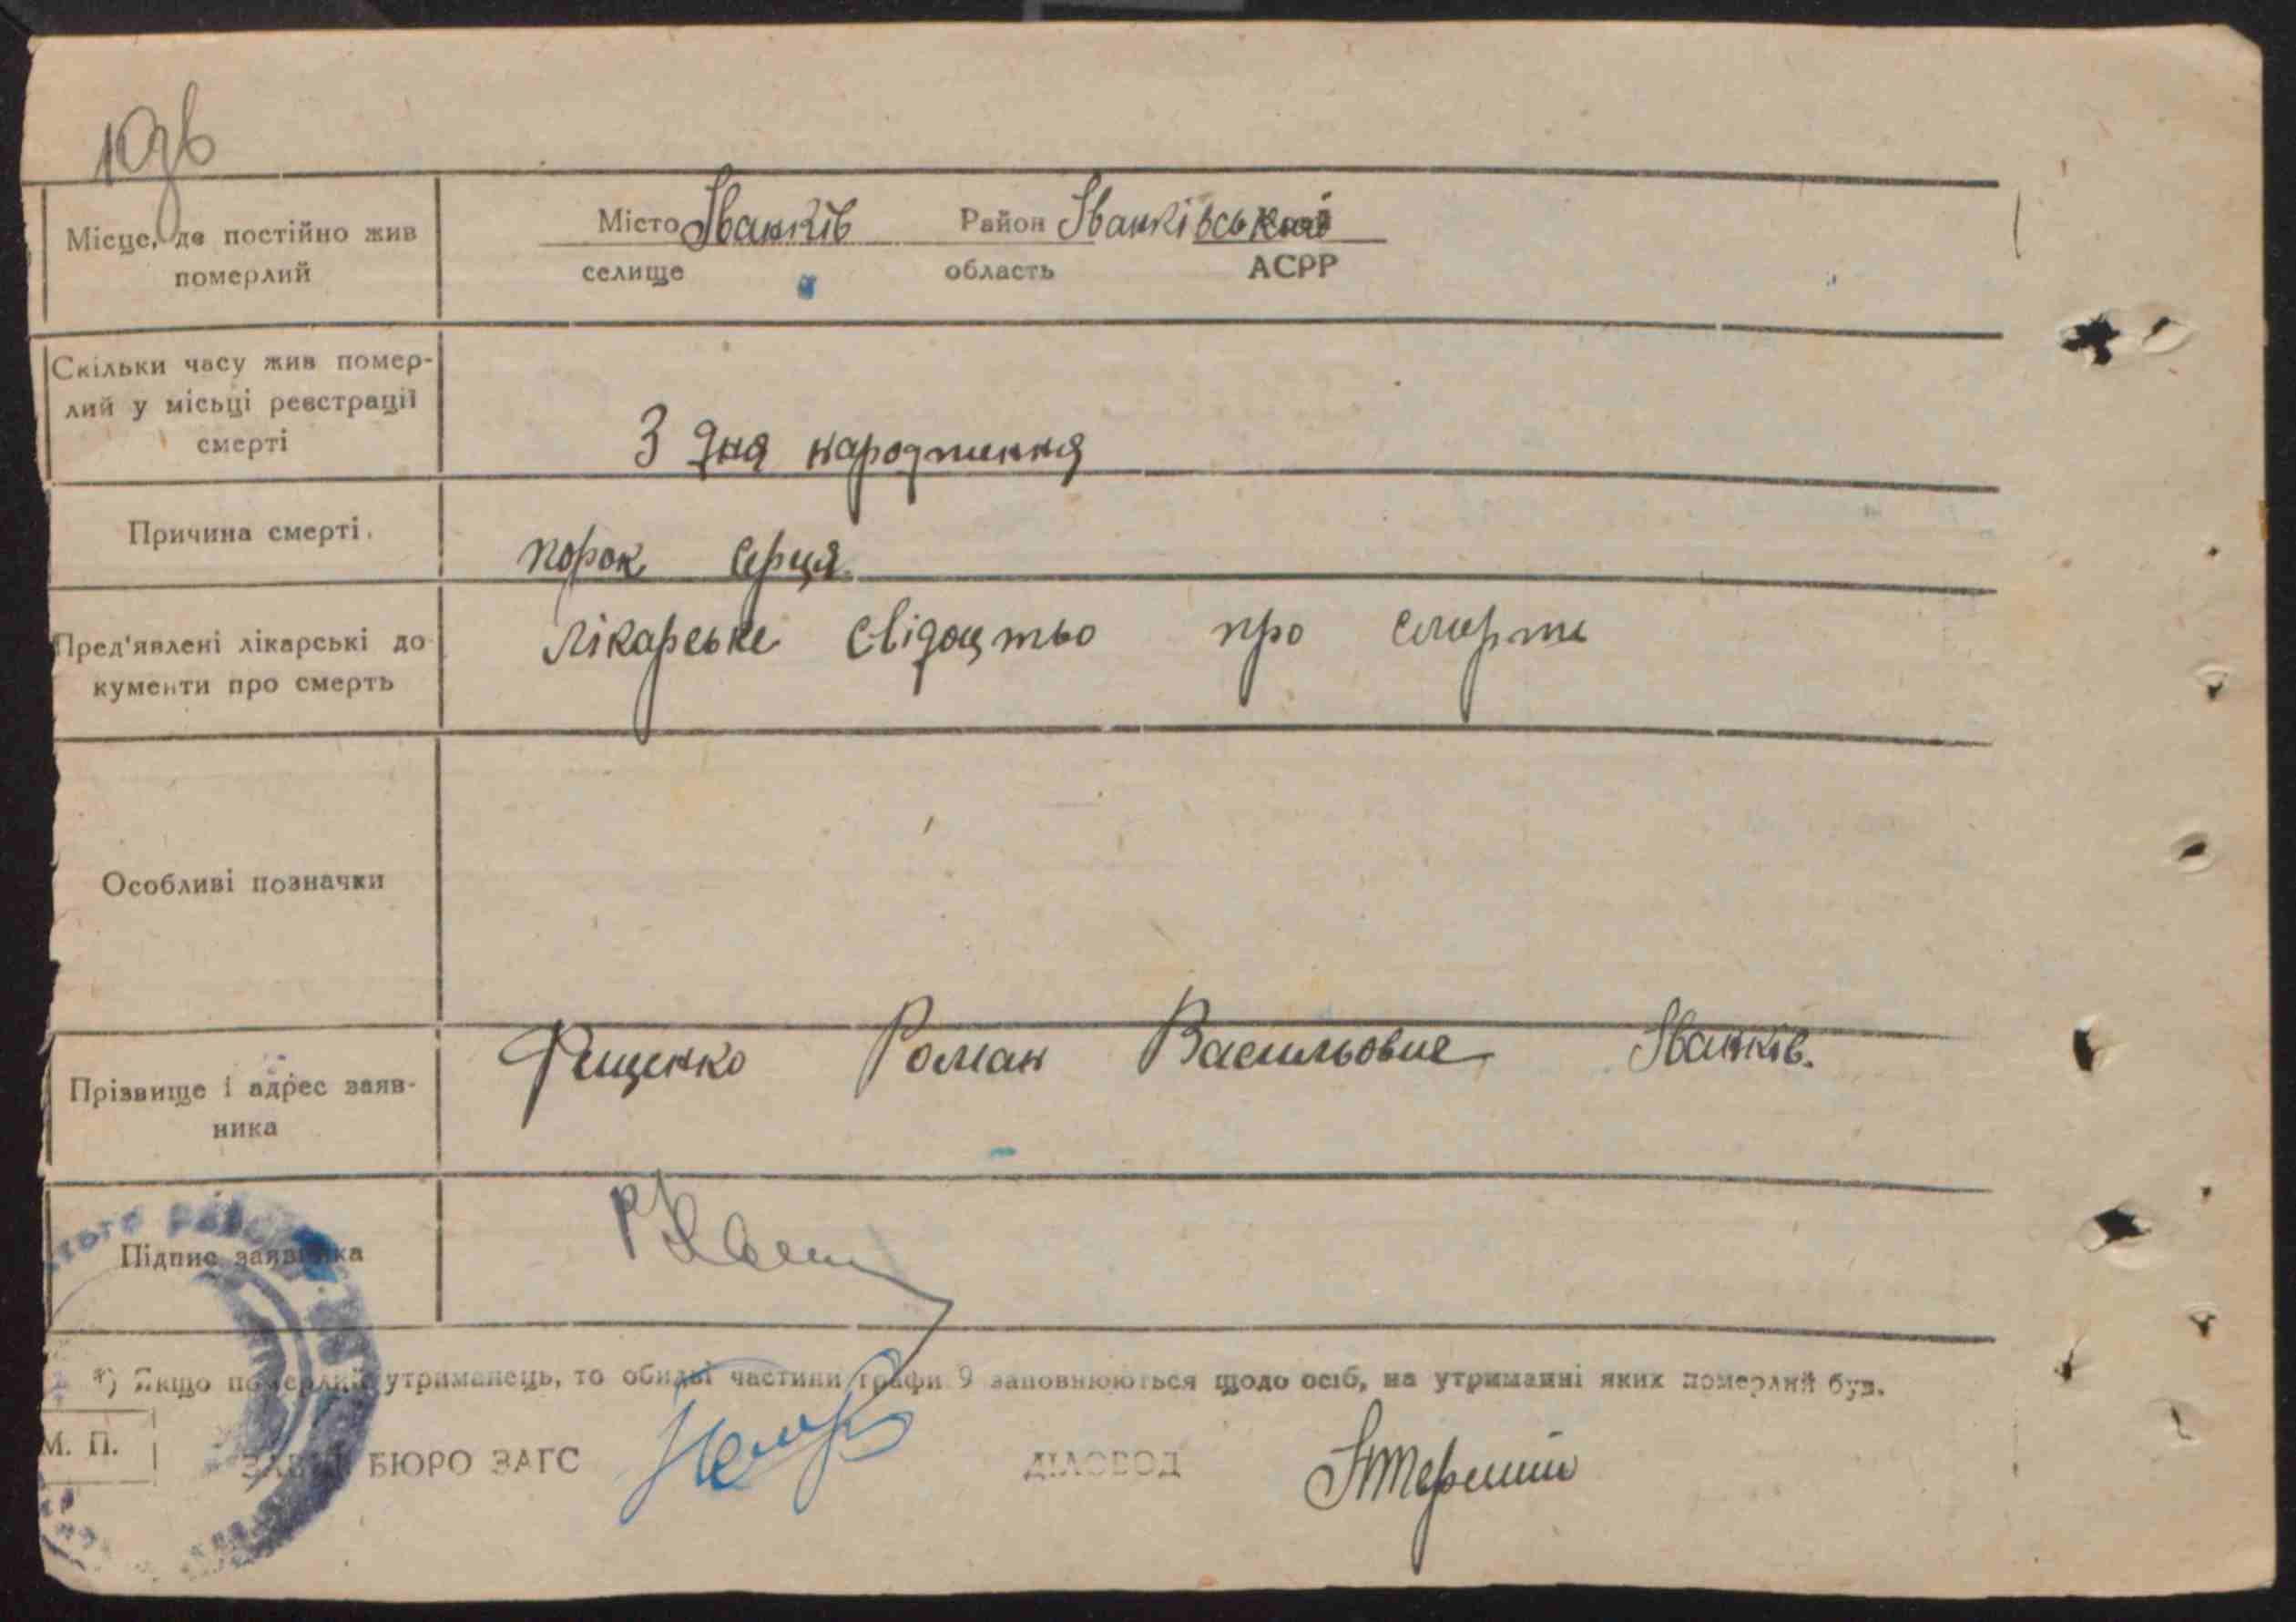 Місце, де постійно жив померлий
Місто Іванків Район Іванківський
селище область АСРР
Скільки часу жив помер-
лий у місьці реєстрації
смерті
З дня народження
Причина смерті.
порок серця.
Пред'явлені лікарські до-
кументи про смерть
Лікарське свідоцтво про смерть
Особливі позначки
Прізвище і адрес заяв-
ника
Рищенко Роман Васильович Іванків.
Підпис заявника
*) Якщо померлий утриманець, то обидві частини графи 9 заповнюються щодо осіб, на утриманні яких померлий був.
М. П.
ЗАВІД. БЮРО ЗАГС
ДІЛОВОД